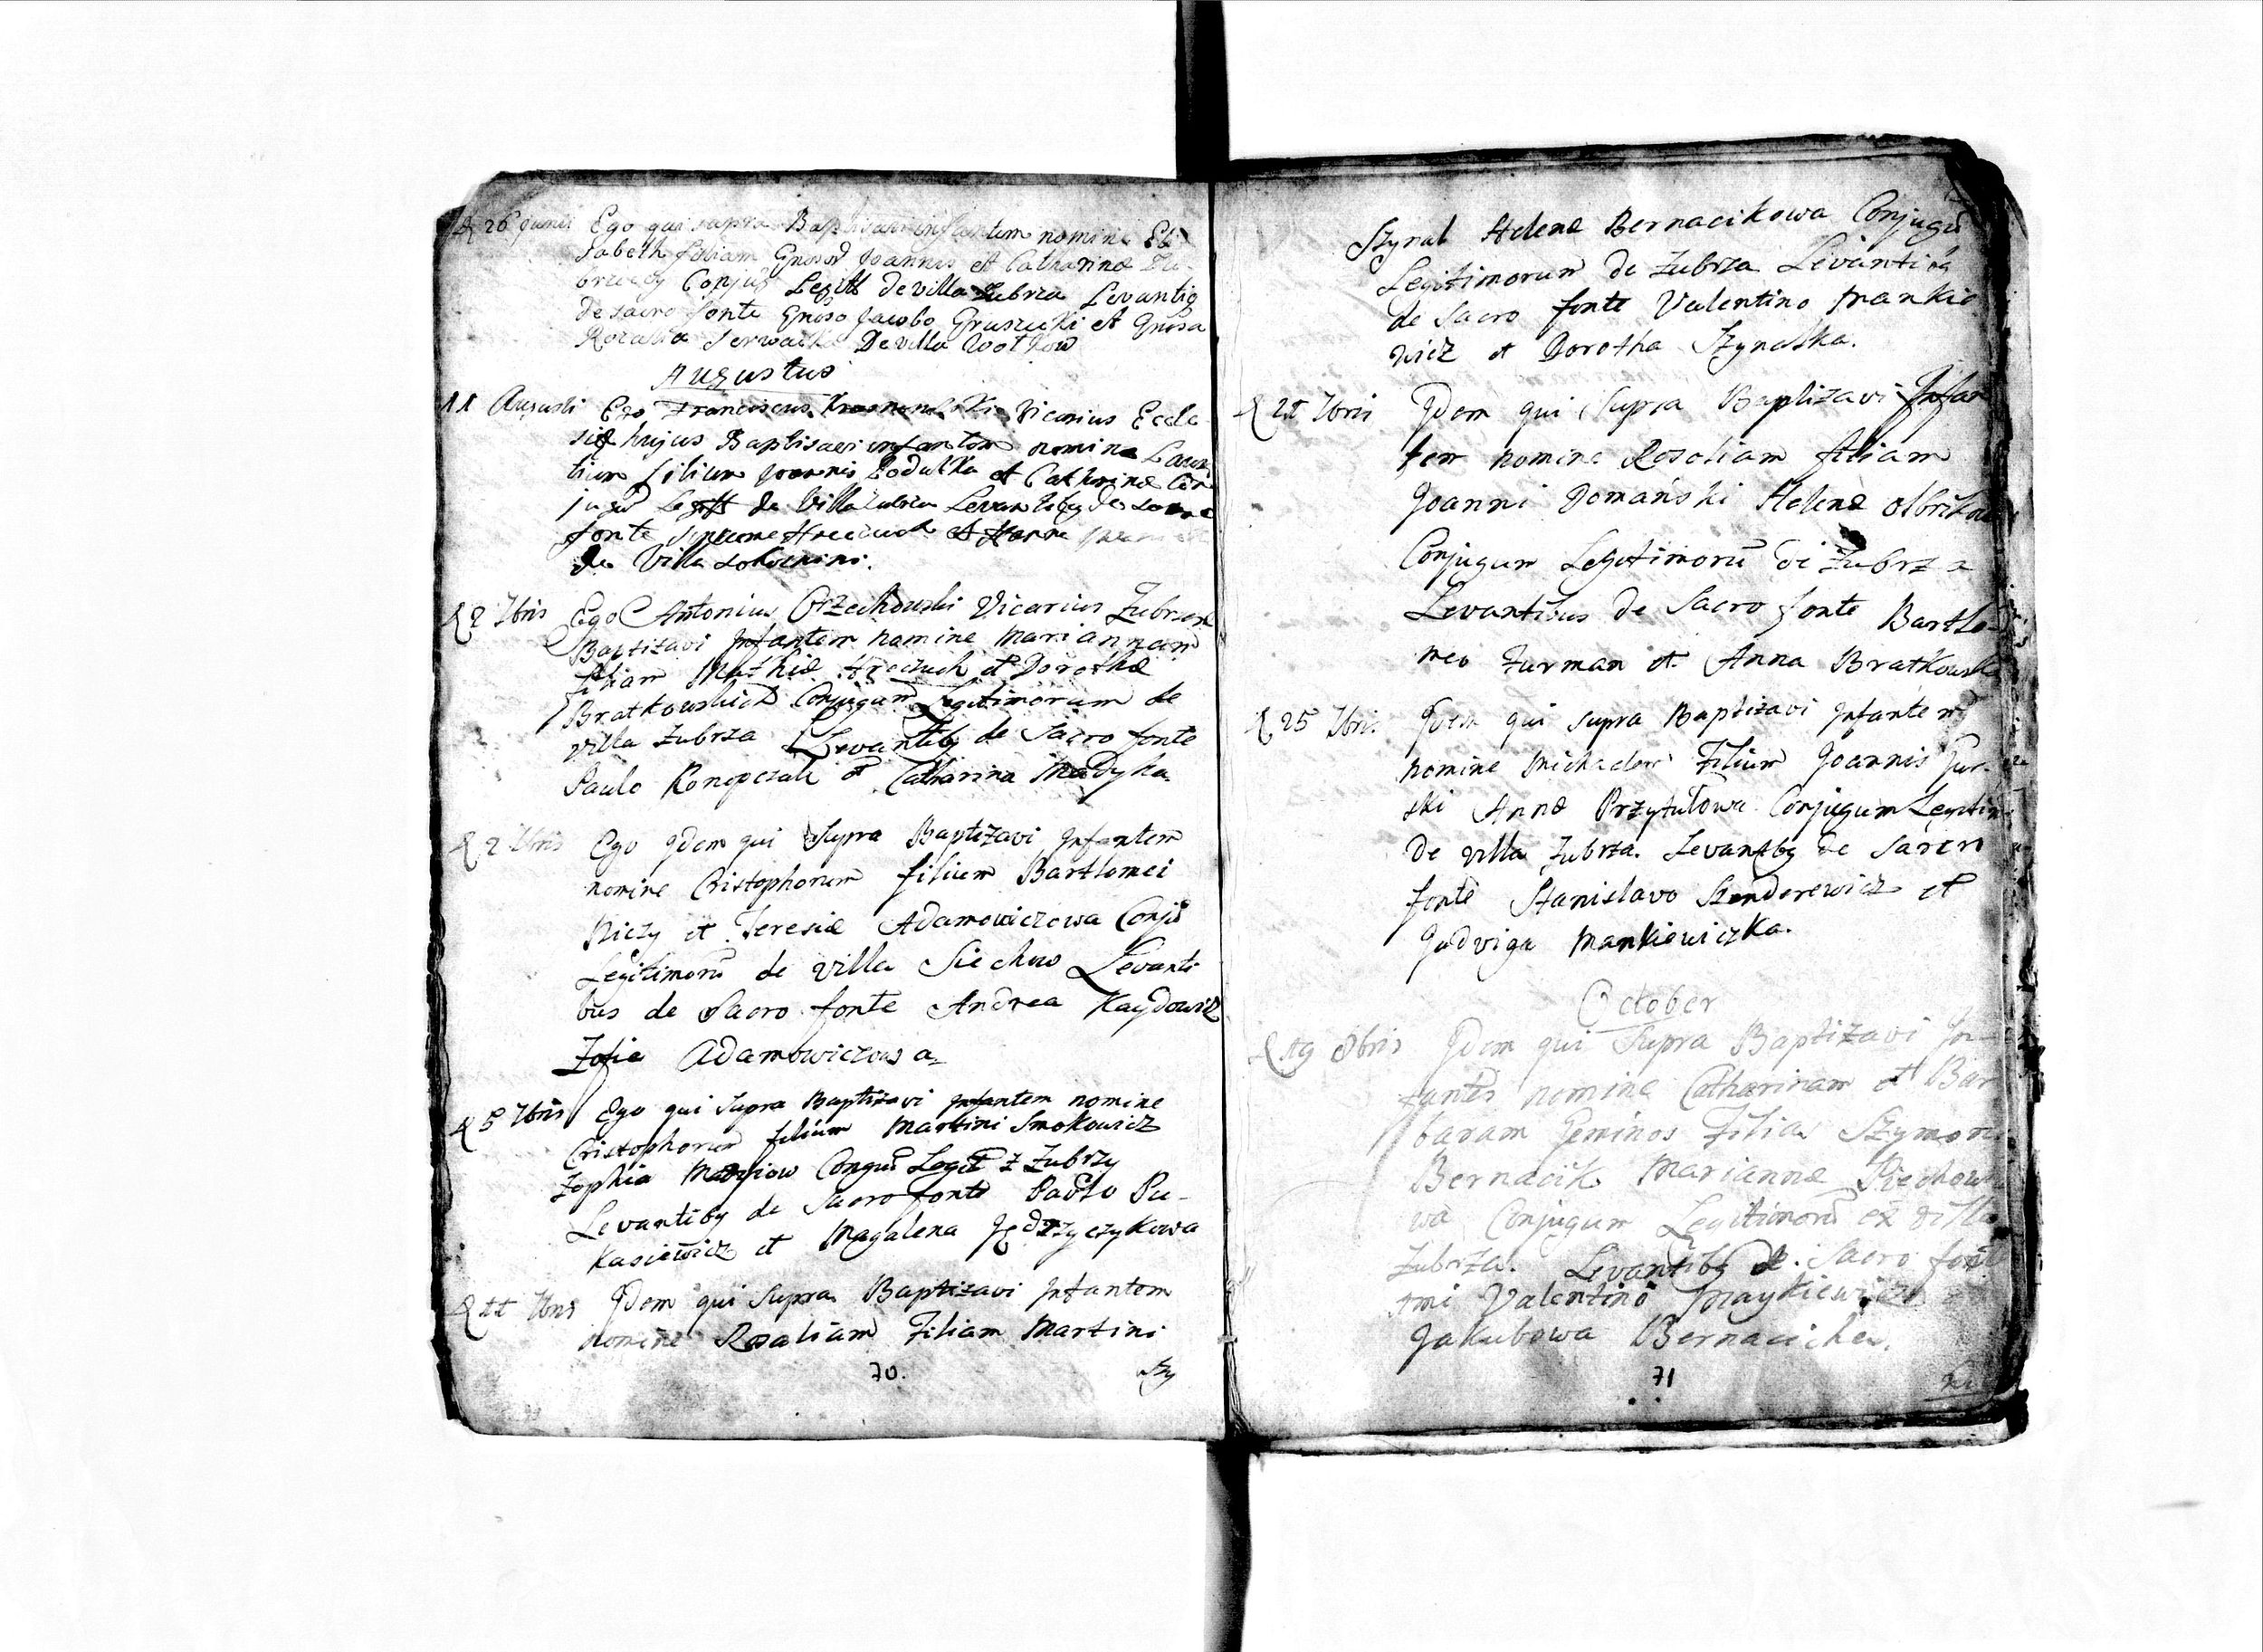 26 Junii Ego qui supra Baptisavi infantem nomine Eli
sabeth filiam Joannis et Catharinæ
Conjug Legitt de villa Zubrza Levantiq
de sacro fonte Jacobo Gruszecki et
Rozalia De villa
Augustus
11 Augusti Ego Franciscus Vicarius Eccle
siæ hujus Baptisavi infantem nomine Lauren
tium filium Joannis et Catharinæ Con
jugū Legitt de Villa Zubrza Levantibq de sacro
fonte et
de Villa
d 2 7bris Ego Antonius Orzechowski Vicarius Zubrzen
Baptizavi Infantem nomine Mariannam
filiam Mathiæ Hreczuch et Dorothæ
Bratkowskich Conjugum Legitimorum de
villa Zubrza Levantibq de Sacro fonte
Paulo Konopczak et Catharina Madyka
d 2 7bris Ego Idem qui Supra Baptizavi Infantem
nomine Cristophorum filium Bartlomei
Kiczy et Teresiæ Adamowiczowa Conjū
Legitimorū de villa Siechow Levanti
bus de Sacro fonte Andrea Kaydowicz
Zofia Adamowiczowa
d 5 7bris Ego qui Supra Baptizavi Infantem nomine
Cristophorum filium Martini Smokowicz
Zophia Conguū Legit z Zubrzy
Levantibq de Sacro fonte Pavlo Pu-
kasiewicz et Magalena Jędrzyczykowa
d 11 7bris Idem qui Supra Baptizavi Infantem
nomine Rosaliam Filiam Martini
70. Szy
Szynal Helenæ Bernacikowa Conjugū
Legitimorum de Zubrza Levantibq
de Sacro fonte Valentino Mankie
wicz et Dorotha Szynalka.
d 21 7bris Idem qui Supra Baptizavi Infan
tem nomine Rosoliam filiam
Joanni Domański Helenæ Olbrikow
Conjugum Legitimorū de Zubrza
Levantibus de Sacro fonte Bartlo-
meo Furman et Anna Bratkowska
d 25 7bris Idem qui supra Baptizavi Infantem
nomine Michaelem Filium Joannis Gur-
ski Annæ Przytułowa Conjugum Legitim
de villa Zubrza. Levantbq de Sacro
fonte Stanislavo Szenderewicz et
Jadviga Mankiewiczka.
October
d 19 8bris Idem qui Supra Baptizavi In-
fantes nomine Catharinam et Bar
baram Geminos Filias Szymon
Bernacik Mariannæ Piechow
wa Conjugum Legitimorū ex villa
Zubrza. Levantibq de Sacro font
Valentino Maykiewicz et
Jakubowa Bernacicha.
71